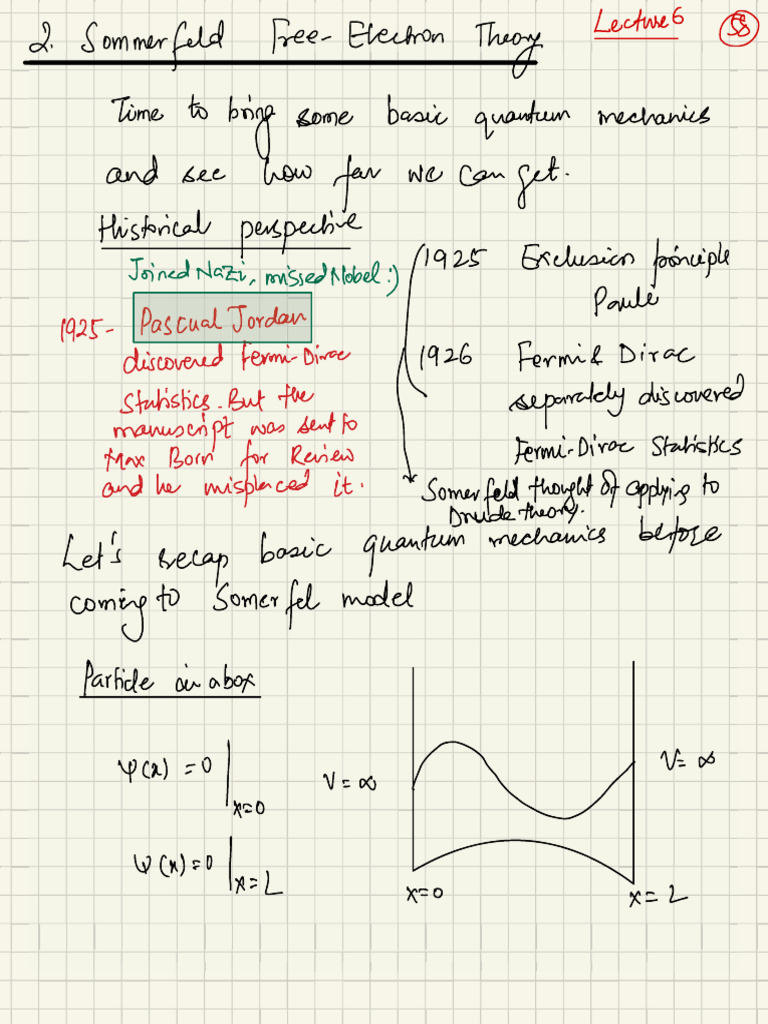 Lecture 6
58
2. Sommerfeld Free-Electron Theory
Time to bring some basic quantum mechanics
and see how far we can get.
Historical perspective
Joined Nazi, missed Nobel :)
1925- Pascual Jordan
discovered Fermi-Dirac
Statistics. But the
manuscript was sent to
Max Born for Review
and he misplaced it.
1925 Exclusion principle
Pauli
1926 Fermi & Dirac
separately discovered
Fermi-Dirac Statistics
Somerfeld thought of applying to
Drude theory.
Let's recap basic quantum mechanics before
coming to Somerfel model
Particle in a box
ψ(x) = 0 |x=0
ψ(x) = 0 |x=L
V = ∞
V = ∞
x=0
x= L